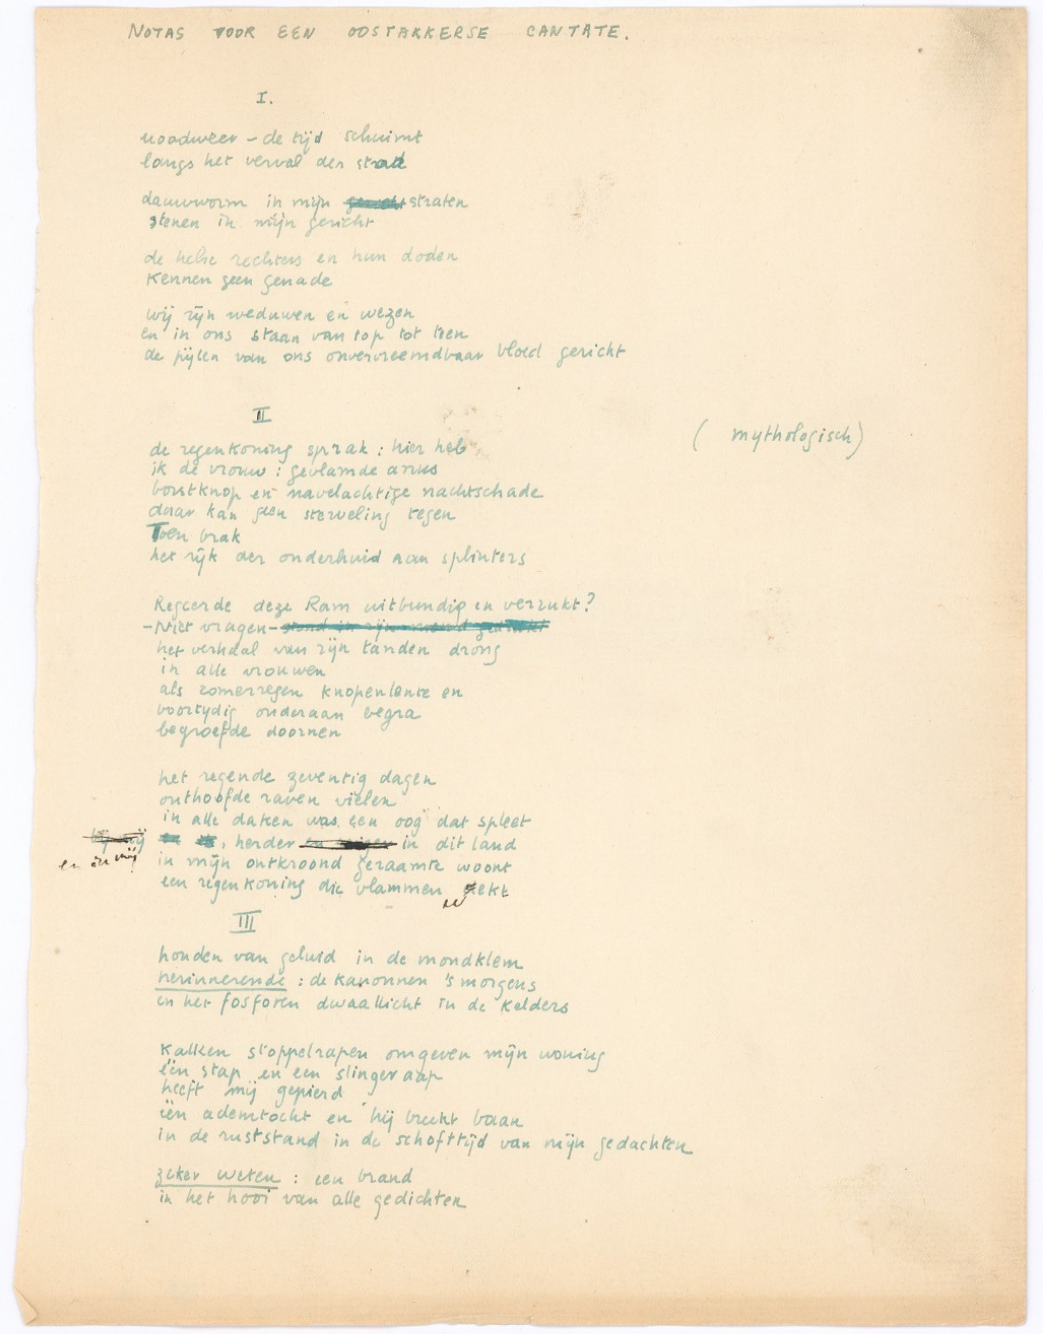 NOTAS VOOR EEN OOSTAKKERSE CANTATE.
I.
noodweer – de tijd schuimt
langs het verval der stad
dauwworm in mijn straten
stenen in mijn gericht
de helse rechters en hun doden
kennen geen genade
wij zijn weduwen en wezen
en in ons staan van top tot teen
de pijlen van ons onvervreemdbaar bloed gericht
II
(mythologisch)
de regenkoning sprak : hier heb
ik de vrouw : gevlamde anus
borstknop en navelachtige nachtschade
daar kan geen sterveling tegen
Toen brak
het rijk der onderhuid aan splinters
Regeerde deze Ram uitbundig en verrukt?
– Niet vragen –
het verhaal van zijn tanden drong
in alle vrouwen
als zomerregen knopenlente en
voortijdig onderaan begra
begroefde doornen
het regende zeventig dagen
onthoofde raven vielen
in alle daken was een oog dat spleet
, herder in dit land
en in mij
in mijn ontkroond geraamte woont
een regenkoning die vlammen wekt
III
honden van geluid in de mondklem
herinnerende : de kanonnen 's morgens
en het fosforen dwaallicht in de kelders
Kalken stoppelrapen omgeven mijn woning
één stap en een slingeraap
heeft mij gepierd
één ademtocht en hij breekt baan
in de ruststand in de schofttijd van mijn gedachten
zeker weten : een brand
in het hooi van alle gedichten